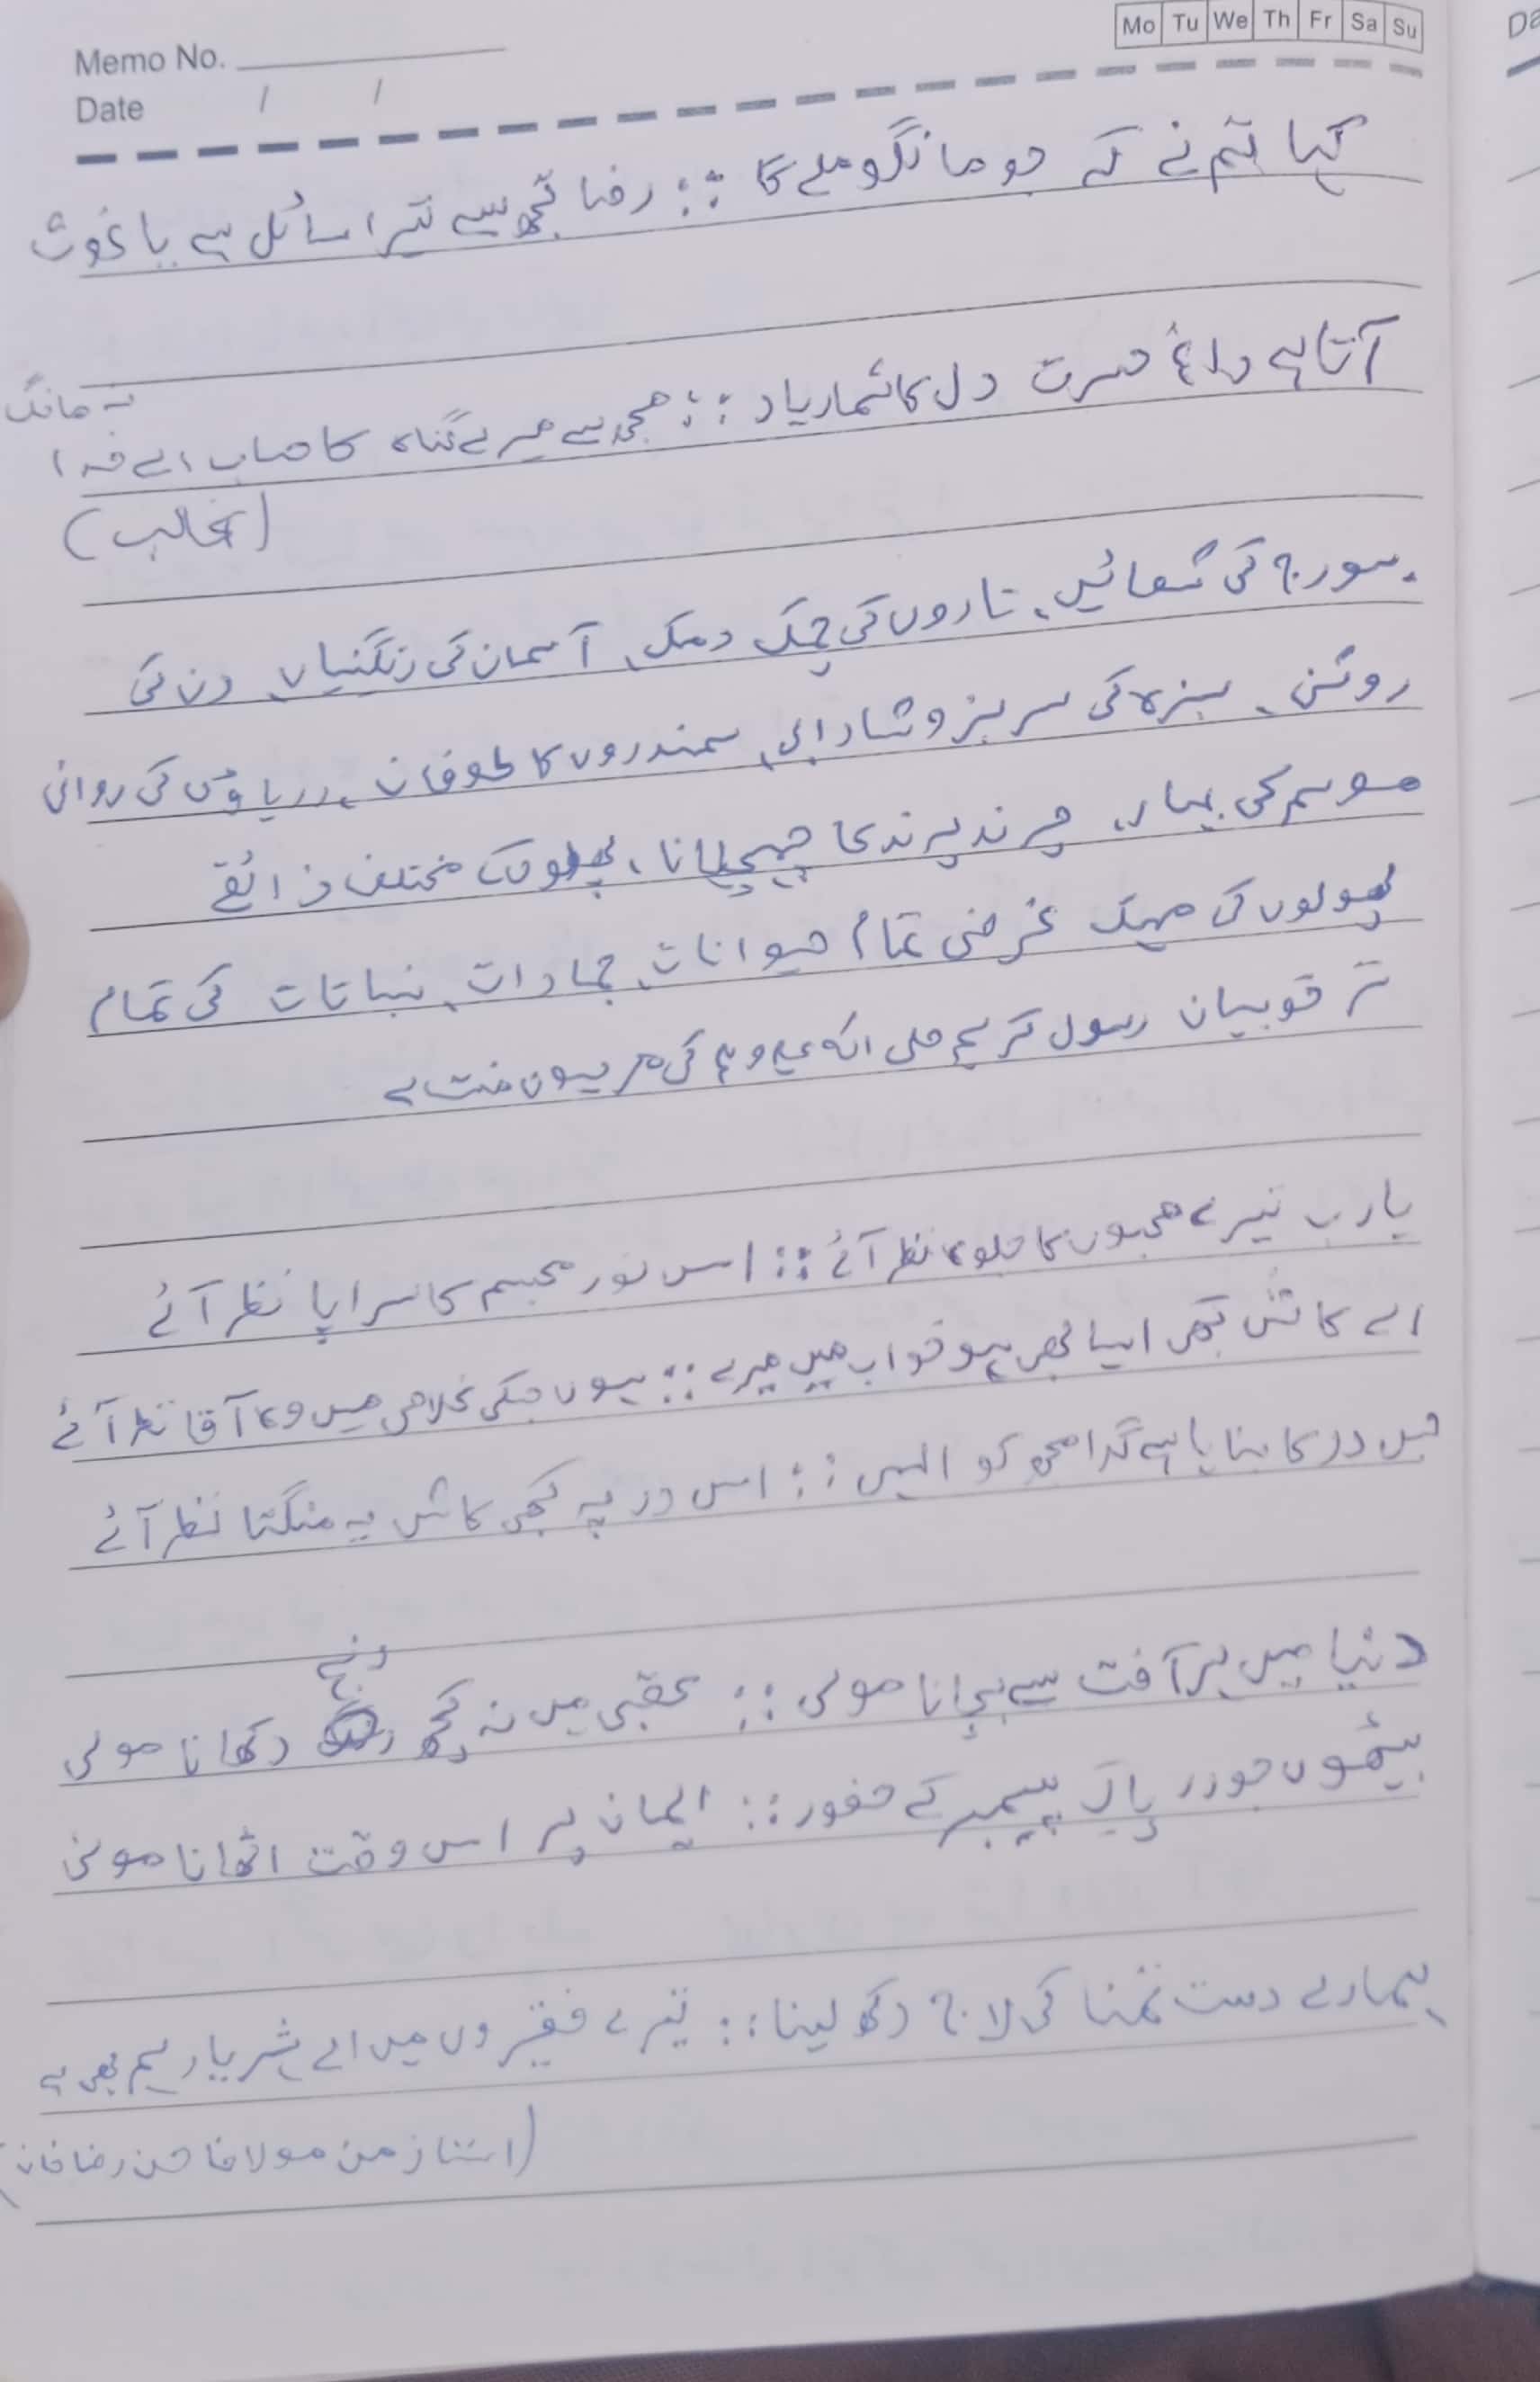 Memo No.
Mo Tu We Th Fr Sa Su
Date / /
کہا تم نے کہ جو مانگو ملے گا :: رضا تجھ سے تیرا سائل ہے یا غوث
آتا ہے داغ حسرت دل کا شمار یاد :: مجھ سے میرے گناہ کا حساب اے خدا نہ مانگ
(غالب)
سورج کی شعائیں، تاروں کی چمک دمک، آسمان کی رنگنیاں، دن کی
روشن، سبزہ کی سرسبز و شادابی، سمندروں کا طوفان، دریاؤں کی روانی
موسم کی بہار، چرند پرند کا چہچہانا، پھلوں کے مختلف ذائقے
پھولوں کی مہک غرض تمام حیوانات، جمادات، نباتات کی تمام
تر خوبیان رسول کریم صلی اللہ علیہ وسلم کی مرہون منت ہے
یا رب تیرے محبوب کا جلوہ نظر آئے :: اس نور مجسم کا سراپا نظر آئے
اے کاش کبھی ایسا بھی ہو خواب میں میرے :: ہوں جسکی غلامی میں وہ آقا نظر آئے
جس در کا بنایا ہے گدا مجھ کو الہی :: اس در پہ کبھی کاش یہ منگتا نظر آئے
دنیا میں ہر آفت سے بچانا مولی :: عقبی میں نہ کچھ رنج دکھانا مولی
بیٹھوں جو در پاک پیمبر کے حضور :: ایمان پر اس وقت اٹھانا مولی
ہمارے دست تمنا کی لاج رکھ لینا :: تیرے فقیروں میں اے شہریار ہم بھی ہے
(استاز من مولانا حسن رضا خان)